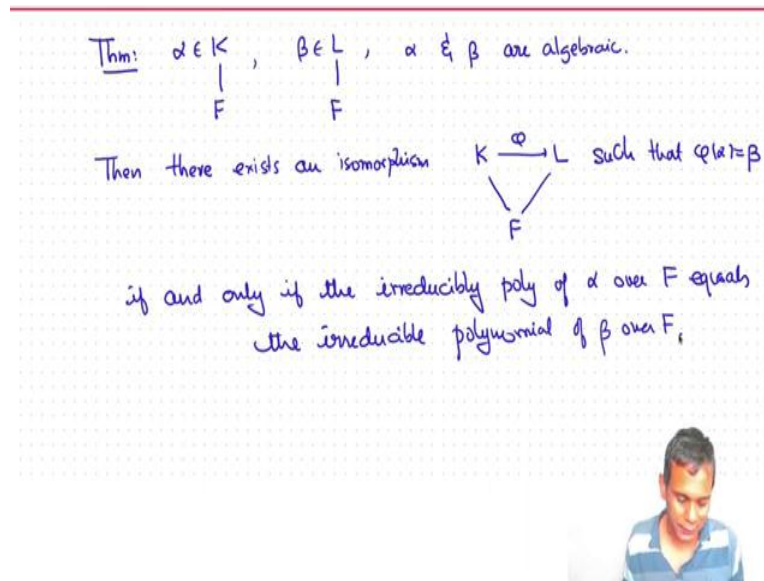 Thm: α ∈ K , β ∈ L , α & β are algebraic.
F F
Then there exists an isomorphism K φ L such that φ(α)=β
F
if and only if the irreducibly poly of α over F equals
the irreducible polynomial of β over F.